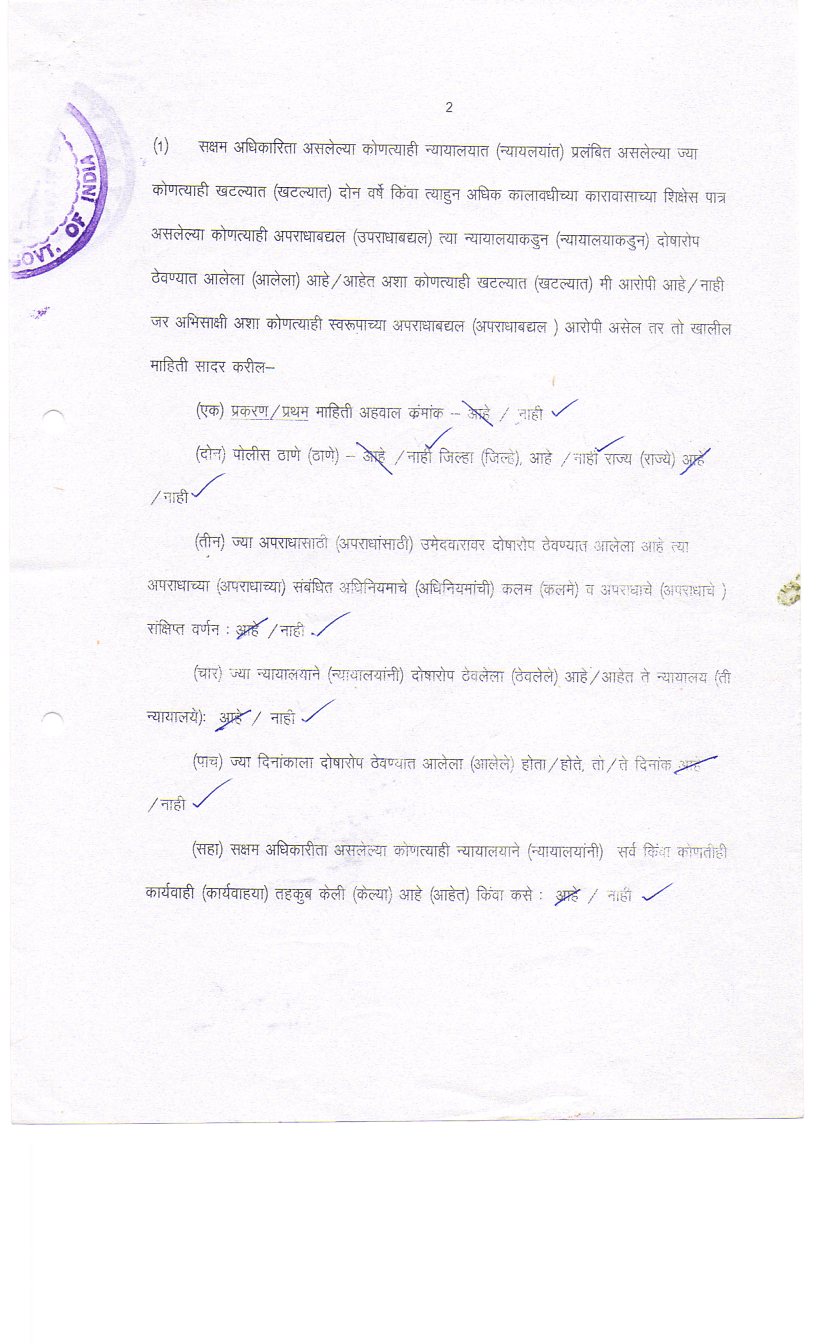 2
GOVT. OF INDIA
(1) सक्षम अधिकारिता असलेल्या कोणत्याही न्यायालयात (न्यायलयांत) प्रलंबित असलेल्या ज्या
कोणत्याही खटल्यात (खटल्यात) दोन वर्षे किंवा त्याहुन अधिक कालावधीच्या कारावासाच्या शिक्षेस पात्र
असलेल्या कोणत्याही अपराधाबद्यल (उपराधाबद्यल) त्या न्यायालयाकडुन (न्यायालयाकडुन) दोषारोप
ठेवण्यात आलेला (आलेला) आहे/आहेत अशा कोणत्याही खटल्यात (खटल्यात) मी आरोपी आहे/नाही
जर अभिसाक्षी अशा कोणत्याही स्वरूपाच्या अपराधाबद्यल (अपराधाबद्यल ) आरोपी असेल तर तो खालील
माहिती सादर करील–
(एक) प्रकरण/प्रथम माहिती अहवाल क्रंमांक – आहे / नाही
(दोन) पोलीस ठाणे (ठाणे) – आहे /नाही जिल्हा (जिल्हे), आहे /नाही राज्य (राज्ये) आहे
/नाही
(तीन) ज्या अपराधासाठी (अपराधांसाठी) उमेदवारावर दोषारोप ठेवण्यात आलेला आहे त्या
अपराधाच्या (अपराधाच्या) संबंधित अधिनियमाचे (अधिनियमांची) कलम (कलमे) व अपराधाचे (अपराधाचे )
संक्षिप्त वर्णन : आहे /नाही
(चार) ज्या न्यायालयाने (न्यायालयांनी) दोषारोप ठेवलेला (ठेवलेले) आहे/आहेत ते न्यायालय (ती
न्यायालये): आहे / नाही
(पाच) ज्या दिनांकाला दोषारोप ठेवण्यात आलेला (आलेले) होता/होते, तो/ते दिनांक आहे
/नाही
(सहा) सक्षम अधिकारीता असलेल्या कोणत्याही न्यायालयाने (न्यायालयांनी) सर्व किंवा कोणतीही
कार्यवाही (कार्यवाहया) तहकुब केली (केल्या) आहे (आहेत) किंवा कसे : आहे / नाही